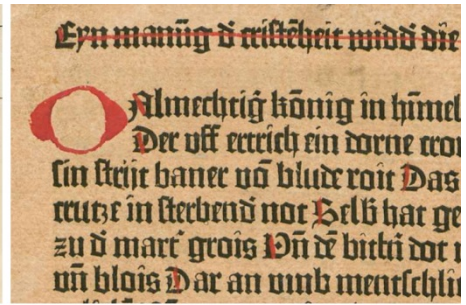 Eyn manūg d̄ cristēheit widd̄ die
O Almechtiḡ kōnig in hīmel
Der uff ertrich ein dorne cro
sin strijt baner vō blude roit Das
crutze in sterbend̄ not Selb̄ hat ge
zu d̄ mart' grois Vn̄ dē bittn̄ dot
vn̄ blois Dar an vmb mentschli